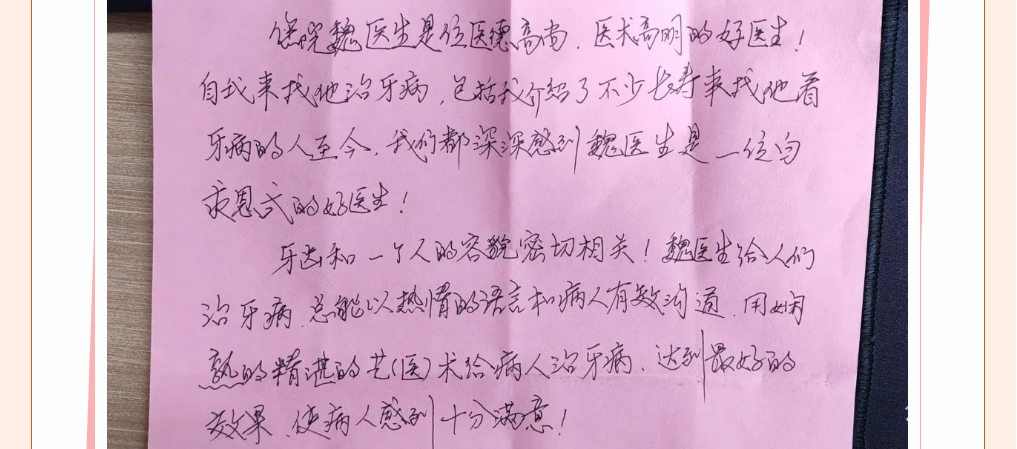 您院魏医生是位医德高尚、医术高明的好医生！
自我来找他治牙病，包括我介绍了不少长寿来找他看
牙病的人至今，我们都深深感到魏医生是一位白
求恩式的好医生！
牙齿和一个人的容貌密切相关！魏医生给人们
治牙病，总能以热情的语言和病人有效沟通，用娴
熟的精湛的艺(医)术给病人治牙病，达到最好的
效果，使病人感到十分满意！